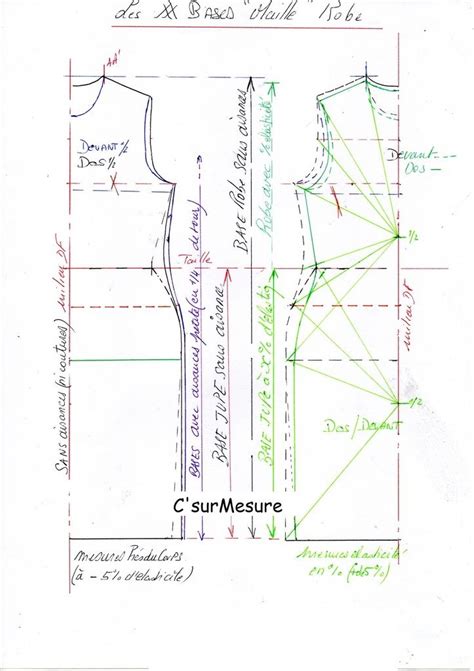 Les XX BASES "Maille" Robe
AA'
DEVANT ½
DOS ½
Devant ---
DOS —
1/2
Taille
milieu DF
milieu DF
SANS aisances (ni coutures)
BASES avec aisances petites (en 1/4 de tour)
BASE JUPE sans aisance
BASE Robe sans aisance
Robe avec % élasticité
BASE JUPE à X% d'élastic
1/2
DOS/DEVANT
C'surMesure
mesures Réédu Corps
(à - 5% d'élasticité)
Mesures élasticité
en % (+ de 5%)